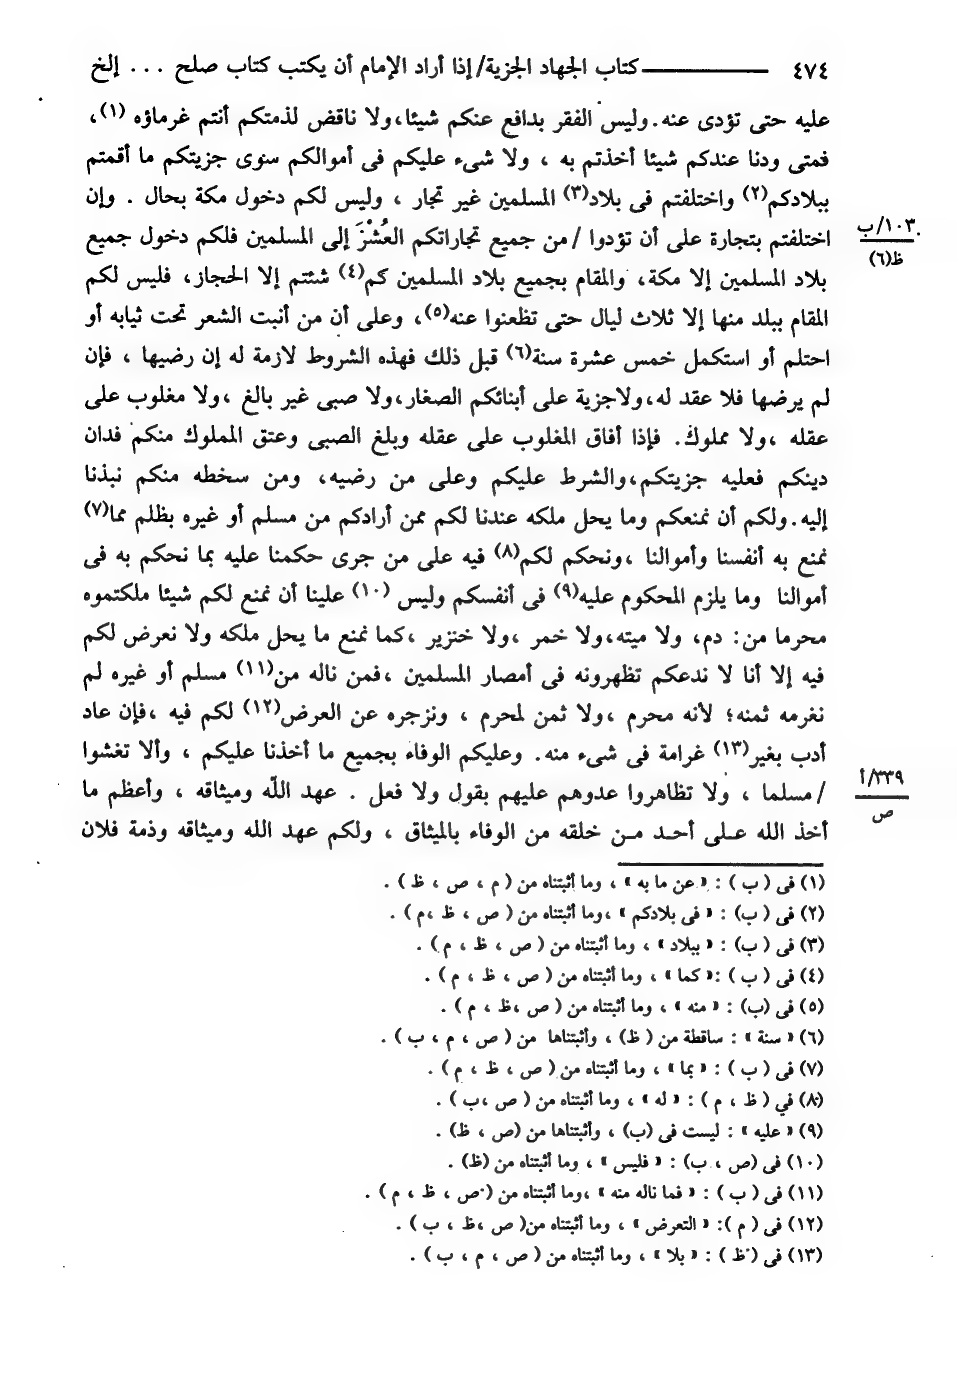 ٤٧٤ ــــــ كتاب الجهاد الجزية/ إذا أراد الإمام أن يكتب كتاب صلح ... إلخ
عليه حتى تؤدى عنه. وليس الفقر بدافع عنكم شيئا، ولا ناقض لذمتكم أنتم غرماؤه (١)،
فمتى ودنا عندكم شيئا أخذتم به ، ولا شىء عليكم فى أموالكم سوى جزيتكم ما أقمتم
ببلادكم(٢) واختلفتم فى بلاد(٣) المسلمين غير تجار ، وليس لكم دخول مكة بحال . وإن
اختلفتم بتجارة على أن تؤدوا / من جميع تجاراتكم العُشْرَ إلى المسلمين فلكم دخول جميع
١٠٣/ب
ظ(٦)
بلاد المسلمين إلا مكة، والمقام بجميع بلاد المسلمين كم(٤) شئتم إلا الحجاز، فليس لكم
المقام ببلد منها إلا ثلاث ليال حتى تظعنوا عنه(٥)، وعلى أن من أنبت الشعر تحت ثيابه أو
احتلم أو استكمل خمس عشرة سنة(٦) قبل ذلك فهذه الشروط لازمة له إن رضيها ، فإن
لم يرضها فلا عقد له، ولاجزية على أبنائكم الصغار، ولا صبى غير بالغ ، ولا مغلوب على
عقله ، ولا مملوك. فإذا أفاق المغلوب على عقله وبلغ الصبى وعتق المملوك منكم فدان
دينكم فعليه جزيتكم، والشرط عليكم وعلى من رضيه، ومن سخطه منكم نبذنا
إليه. ولكم أن نمنعكم وما يحل ملكه عندنا لكم ممن أرادكم من مسلم أو غيره بظلم مما(٧)
نمنع به أنفسنا وأموالنا ، ونحكم لكم(٨) فيه على من جرى حكمنا عليه بما نحكم به فى
أموالنا وما يلزم المحكوم عليه(٩) فى أنفسكم وليس (١٠) علينا أن نمنع لكم شيئا ملكتموه
محرما من: دم، ولا ميته، ولا خمر ، ولا خنزير ، كما نمنع ما يحل ملكه ولا نعرض لكم
فيه إلا أنا لا ندعكم تظهرونه فى أمصار المسلمين ، فمن ناله من(١١) مسلم أو غيره لم
نغرمه ثمنه؛ لأنه محرم ، ولا ثمن لمحرم ، ونزجره عن العرض(١٢) لكم فيه ، فإن عاد
أدب بغير(١٣) غرامة فى شىء منه. وعليكم الوفاء بجميع ما أخذنا عليكم ، وألا تغشوا
/ مسلما ، ولا تظاهروا عدوهم عليهم بقول ولا فعل . عهد الله وميثاقه ، وأعظم ما
٣٣٩/أ
ص
أخذ الله على أحد من خلقه من الوفاء بالميثاق ، ولكم عهد الله وميثاقه وذمة فلان
(١) فى ( ب ) : « عن ما به » ، وما أثبتناه من ( م ، ص ، ظ ) .
(٢) فى ( ب) : « فى بلادكم » ، وما أثبتناه من ( ص ، ظ ،م ) .
(٣) فى ( ب) : « ببلاد » ، وما أثبتناه من ( ص ، ظ ، م ) .
(٤) فى ( ب ) :« كما » ، وما أثبتناه من ( ص ، ظ ، م ) .
(٥) فى (ب) : « منه » ، وما أثبتناه من ( ص ،ظ ، م ) .
(٦) « سنة » : ساقطة من ( ظ) ، وأثبتناها من ( ص ، م ، ب ) .
(٧) فى ( ب ) : « بما » ، وما أثبتناه من ( ص ، ظ ، م ) .
(٨) في ( ظ ، م ) : « له » ، وما أثبتناه من ( ص ،ب ) .
(٩) « عليه » : ليست فى (ب) ، وأثبتناها من (ص ، ظ) .
(١٠) فى (ص ، ب) : « فليس » ، وما أثبتناه من (ظ) .
(١١) فى ( ب ) : « فما ناله منه » ،وما أثبتناه من ( ص ، ظ ، م ) .
(١٢) فى ( م ): « التعرض » ، وما أثبتناه من( ص ،ظ ، ب ) .
(١٣) فى ( ظ ) : « بلا » ، وما أثبتناه من ( ص ، م ، ب ) .